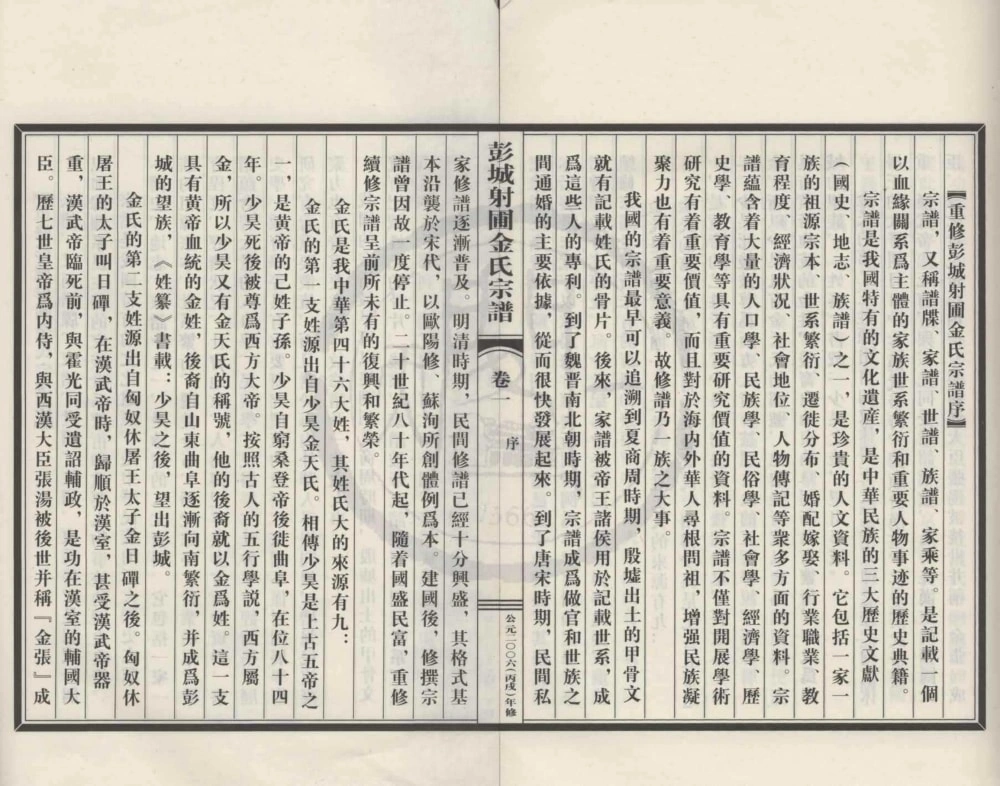 【重修彭城射圃金氏宗譜序】
宗譜，又稱譜牒、家譜、世譜、族譜、家乘等。是記載一個
以血緣關系爲主體的家族世系繁衍和重要人物事迹的歷史典籍。
宗譜是我國特有的文化遺産，是中華民族的三大歷史文獻
（國史、地志、族譜）之一，是珍貴的人文資料。它包括一家一
族的祖源宗本、世系繁衍、遷徙分布、婚配嫁娶、行業職業、教
育程度、經濟狀况、社會地位、人物傳記等衆多方面的資料。宗
譜藴含着大量的人口學、民族學、民俗學、社會學、經濟學、歷
史學、教育學等具有重要研究價值的資料。宗譜不僅對開展學術
研究有着重要價值，而且對於海内外華人尋根問祖，增强民族凝
聚力也有着重要意義。故修譜乃一族之大事。
我國的宗譜最早可以追溯到夏商周時期，殷墟出土的甲骨文
就有記載姓氏的骨片。後來，家譜被帝王諸侯用於記載世系，成
爲這些人的專利。到了魏晋南北朝時期，宗譜成爲做官和世族之
間通婚的主要依據，從而很快發展起來。到了唐宋時期，民間私
彭城射圃金氏宗譜
卷一
序
公元二〇〇六（丙戌）年修
家修譜逐漸普及。明清時期，民間修譜已經十分興盛，其格式基
本沿襲於宋代，以歐陽修、蘇洵所創體例爲本。建國後，修撰宗
譜曾因故一度停止。二十世紀八十年代起，隨着國盛民富，重修
續修宗譜呈前所未有的復興和繁榮。
金氏是我中華第四十六大姓，其姓氏大的來源有九：
金氏的第一支姓源出自少昊金天氏。相傳少昊是上古五帝之
一，是黄帝的己姓子孫。少昊自窮桑登帝後徙曲阜，在位八十四
年。少昊死後被尊爲西方大帝。按照古人的五行學説，西方屬
金，所以少昊又有金天氏的稱號，他的後裔就以金爲姓。這一支
具有黄帝血統的金姓，後裔自山東曲阜逐漸向南繁衍，并成爲彭
城的望族，《姓纂》書載：少昊之後，望出彭城。
金氏的第二支姓源出自匈奴休屠王太子金日磾之後。匈奴休
屠王的太子叫日磾，在漢武帝時，歸順於漢室，甚受漢武帝器
重，漢武帝臨死前，與霍光同受遺詔輔政，是功在漢室的輔國大
臣。歷七世皇帝爲内侍，與西漢大臣張湯被後世并稱『金張』成